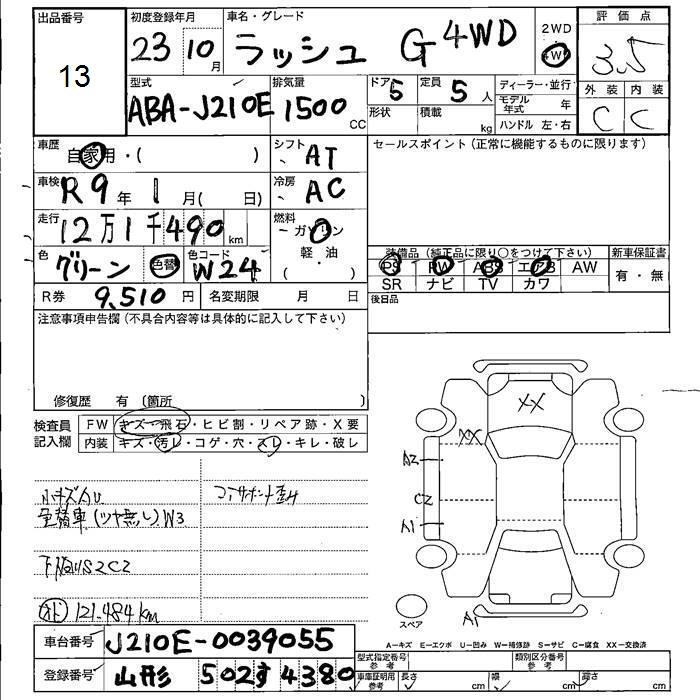 出品番号 13
初度登録年月 23 10月
車名・グレード ラッシュ G 4WD
2WD 4W
評価点 3.5
型式 ABA-J210E
排気量 1500 CC
ドア 5
定員 5人
形状
積載 kg
ディーラー・並行
モデル年式 年
ハンドル 左・右
外装 C
内装 C
車歴 自家用・( )
シフト AT
セールスポイント (正常に機能するものに限ります)
車検 R9年 1月( 日)
冷房 AC
走行 12万1千490km
燃料 ガソリン
軽・油
( )
色 グリーン 色替
色コード W24
装備品 (純正品に限り○をつけて下さい)
新車保証書
PS PW ABS エアB AW
有・無
SR ナビ TV カワ
R券 9,510円
名変期限 月 日
後日品
注意事項申告欄 (不具合内容等は具体的に記入して下さい)
修復歴 有 (箇所 )
検査員記入欄
FW キズ・飛石・ヒビ割・リペア跡・X要
内装 キズ・汚レ・コゲ・穴・スレ・キレ・破レ
XX
XX
A2
C2
A1
A1
小キズAU
コアサポート歪み
色替車(ツヤ無し)W3
下廻りS2C2
121.484km
スペア
A-キズ E-エクボ U-凹み W-補修跡 S-サビ C-腐食 XX-交換済
車台番号 J210E-0039055
登録番号 山形 502す4380
型式指定番号 参考
類別区分番号 参考
車庫証明用 参考
長さ cm
幅 cm
高さ cm